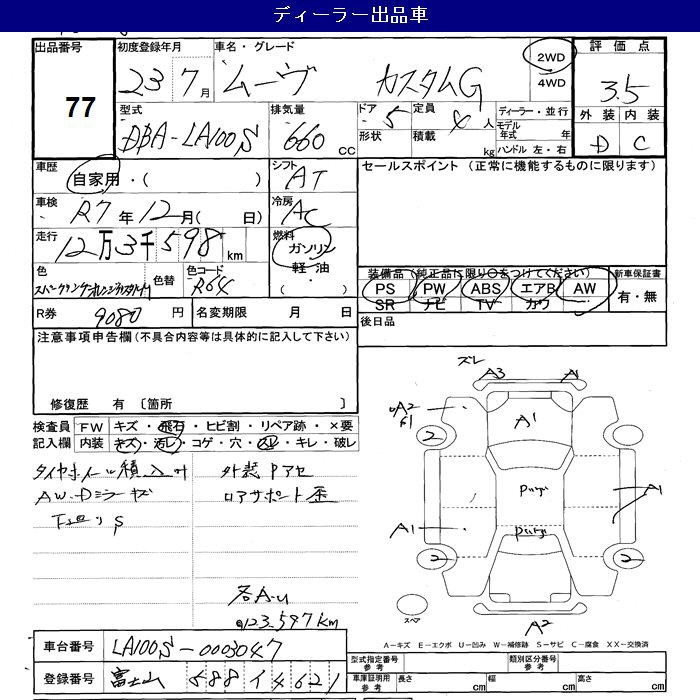 ディーラー出品車
出品番号 初度登録年月 車名・グレード 2WD 評価点
77 23 7月 ムーヴ カスタムG 4WD 3.5
型式 排気量 ドア 5 定員 4人 ディーラー・並行 外装 内装
DBA-LA100S 660 cc 形状 積載 kg モデル年式 年 D C
ハンドル 左・右
車歴 自家用・( ) シフト AT セールスポイント (正常に機能するものに限ります)
車検 R7年12月( 日) 冷房 AC
走行 12万3千598km 燃料 ガソリン
軽油
( ・ )
色 色替 色コード R64 装備品 (純正品に限り○をつけてください) 新車保証書
PS PW ABS エアB AW 有・無
SR ナビ TV カワ
R券 9080円 名変期限 月 日 後日品
注意事項申告欄(不具合内容等は具体的に記入して下さい)
修復歴 有 〔箇所 〕
検査員 FW キズ・飛石・ヒビ割・リペア跡・×要
記入欄 内装 キズ・汚レ・コゲ・穴・スレ・キレ・破レ
タイヤホイール積入叶 外装Pアセ
AW・Dミラーキズ ロアサポート歪
下廻りS
各A・U
@123.597km
ズレ
A3 A1
@A2
61
A1
2
Purge
A1
A1
Purge
2 2
スペア
A2
A-キズ E-エクボ U-凹み W-補修跡 S-サビ C-腐食 XX-交換済
車台番号 LA100S-0003047
登録番号 富士山 588 イ 4621
型式指定番号 参考 類別区分番号 参考
車庫証明用 参考 長さ cm 幅 cm 高さ cm